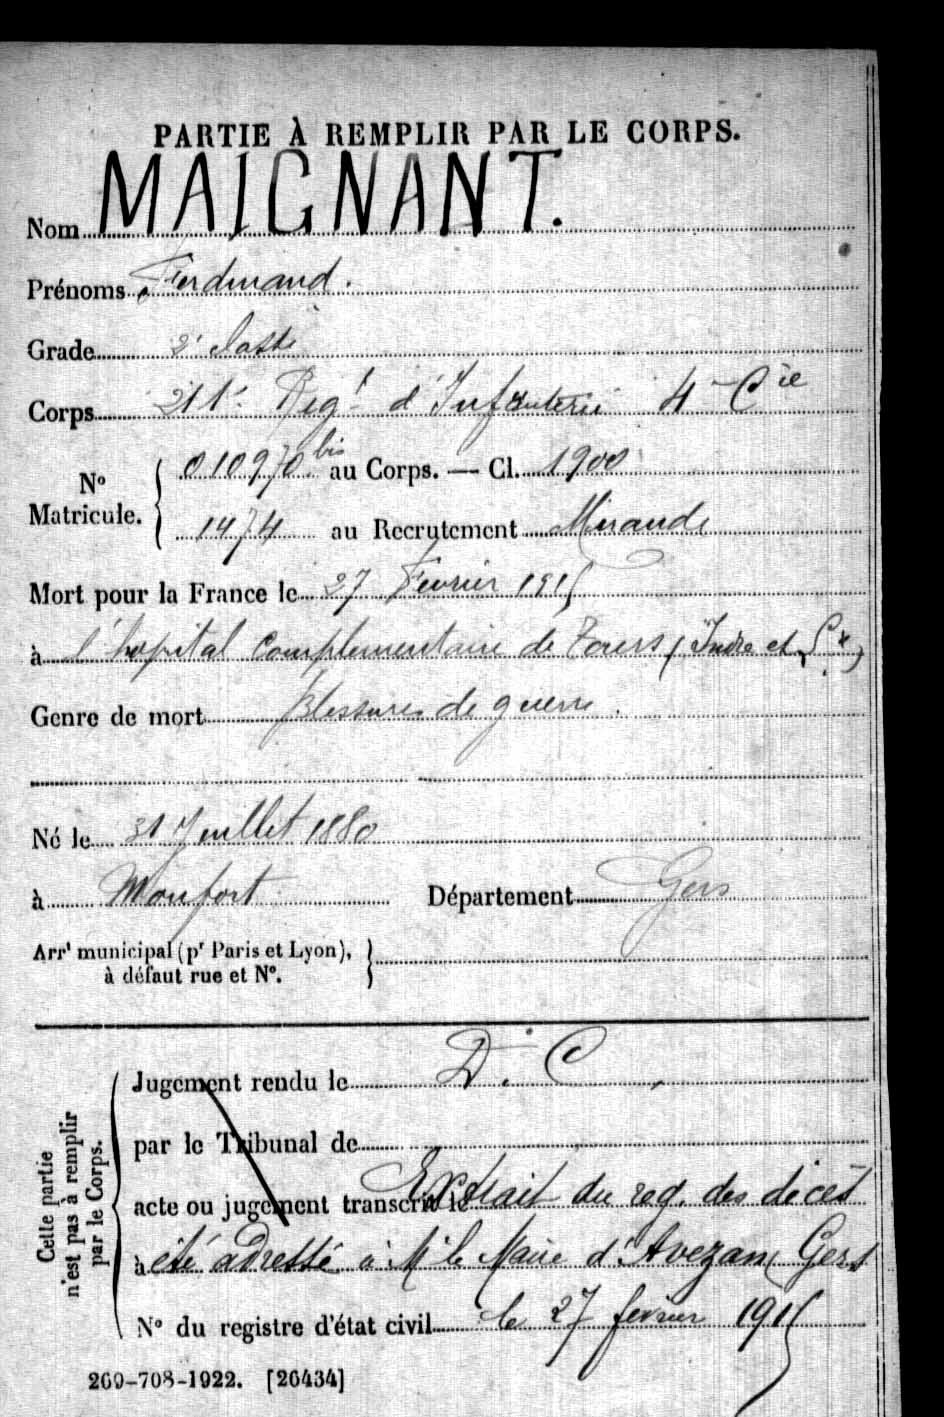 PARTIE À REMPLIR PAR LE CORPS.
Nom MAIGNANT.
Prénoms Ferdinand.
Grade 2e classe
Corps 211e Regt d'Infanterie 4e Cie
No Matricule. { 010970 bis au Corps. — Cl. 1900
1474 au Recrutement Mirande
Mort pour la France le 27 Fevrier 1915
à l'hopital complementaire de Tours (Indre et Lre)
Genre de mort Blessures de guerre.
Né le 31 Juillet 1880
à Monfort Département Gers
Arrt municipal (pr Paris et Lyon), }
à défaut rue et No.
Cette partie n'est pas à remplir par le Corps.
Jugement rendu le D. C.
par le Tribunal de
acte ou jugement transcrit le Extrait du reg. des décès
à été adressé à Mr le Maire d'Avezan Gers
No du registre d'état civil le 27 février 1915
269-708-1922. [26434]